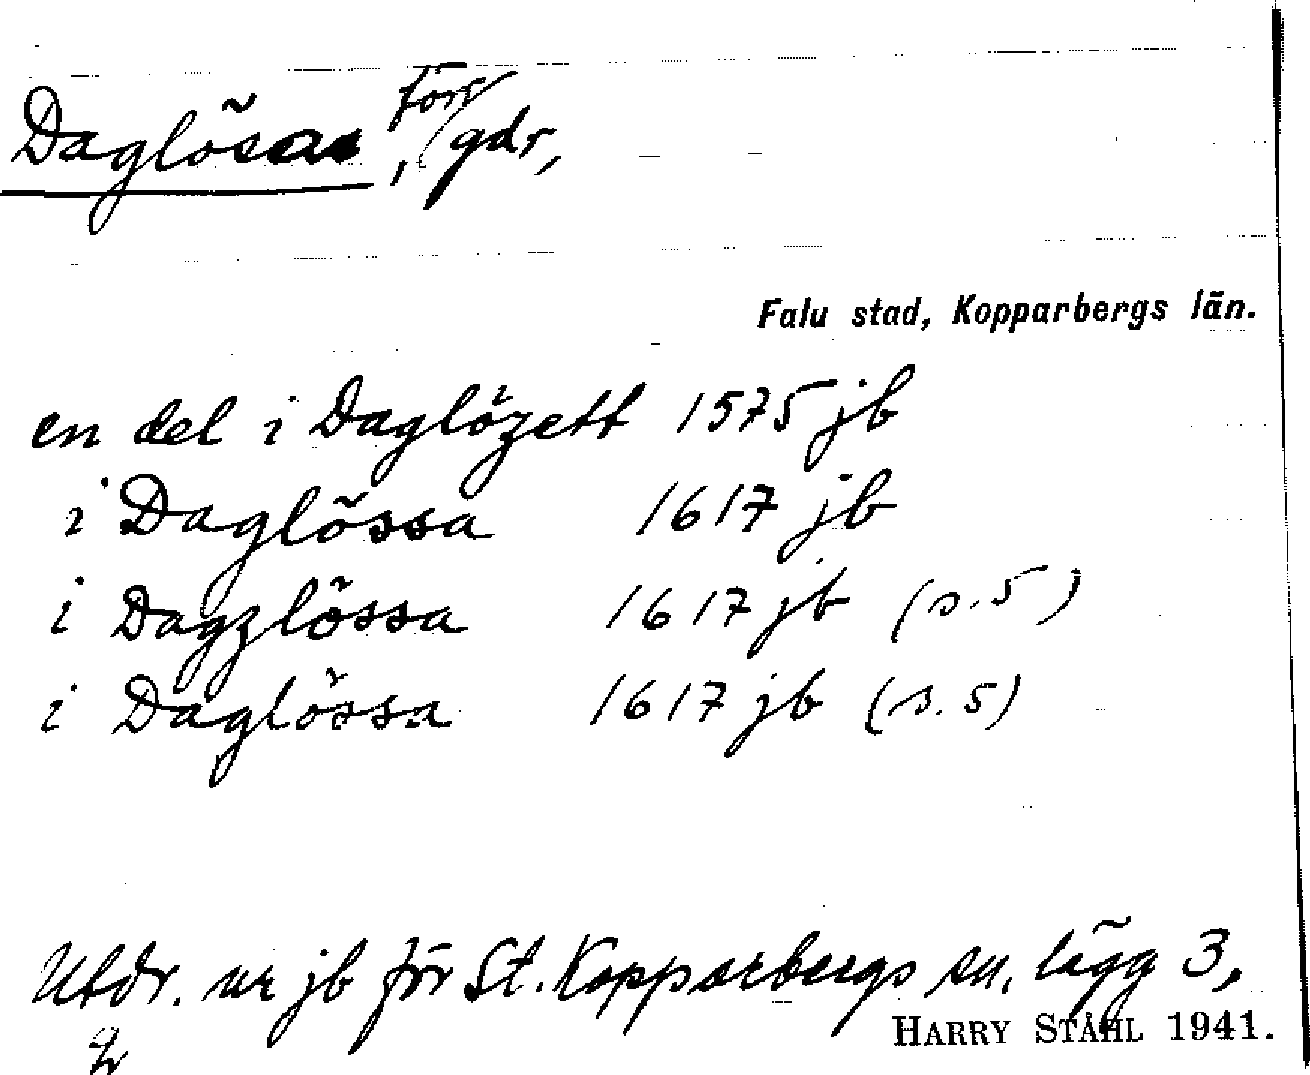 Daglösa, förr gdr,
Falu stad, Kopparbergs län.
en del i Daglözett 1575 jb
i Daglössa 1617 jb
i Dagzlössa 1617 jb (s. 5)
i Daglössa 1617 jb (s. 5)
Utdr. ur jb för St. Kopparbergs sn, lägg 3,
HARRY STÅHL 1941.
2